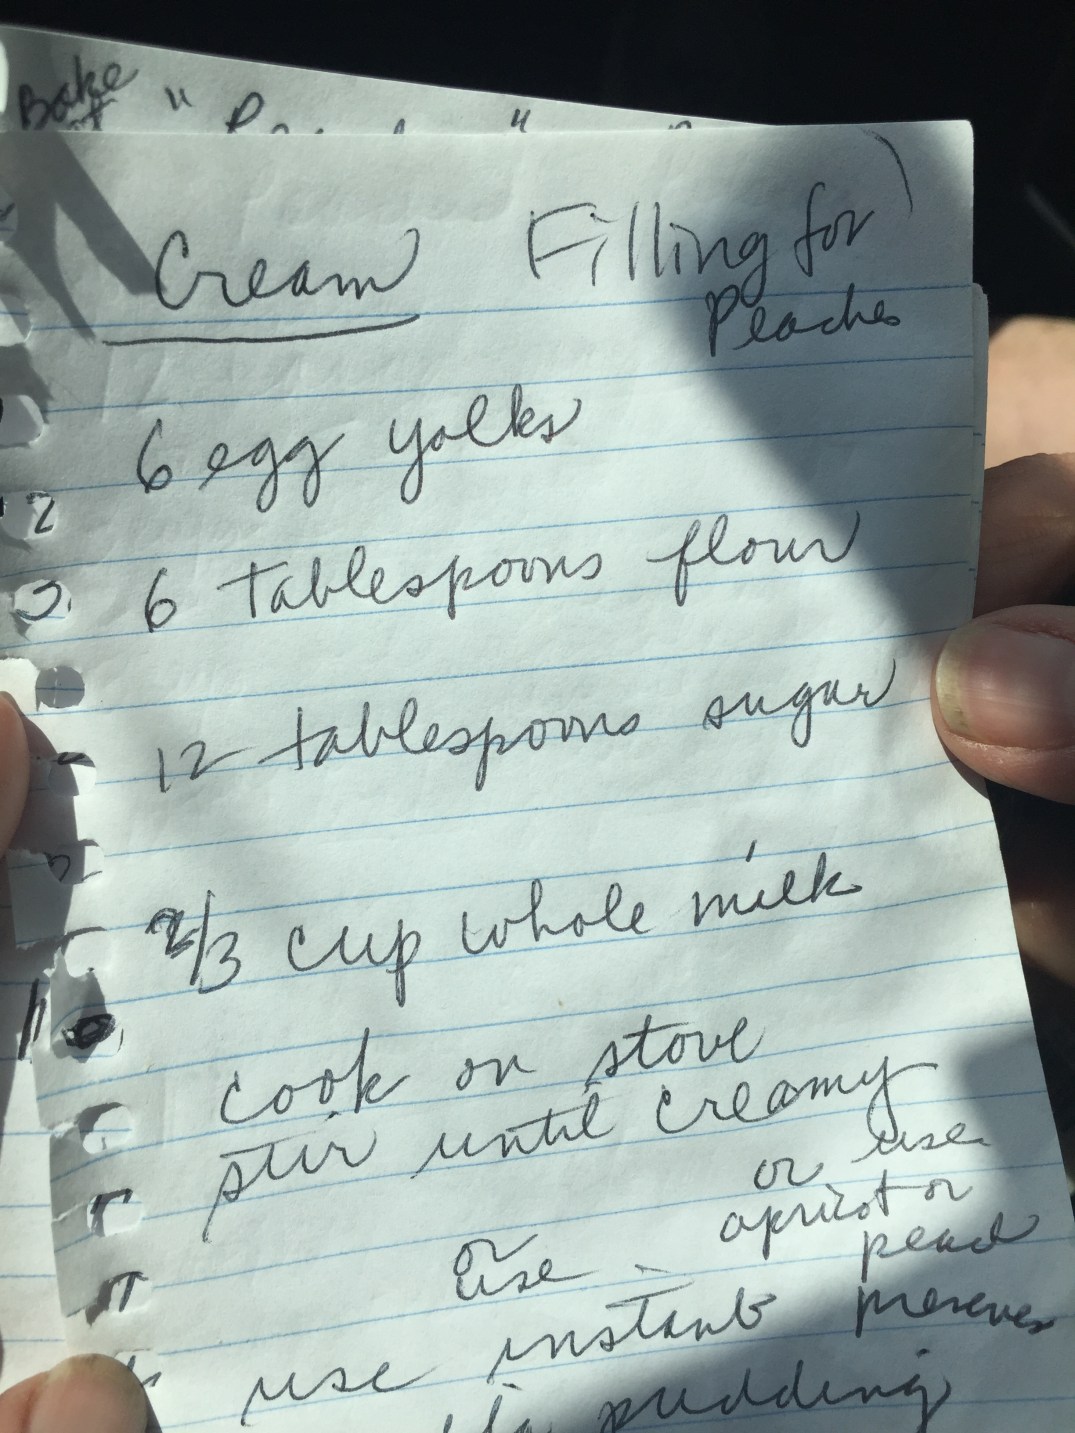 Bake
Cream Filling for
Peaches
6 egg yolks
6 tablespoons flour
12 tablespoons sugar
2/3 cup whole milk
cook on stove
stir until creamy
or use
apricot or
peach
preserves
or
use
use instant
pudding